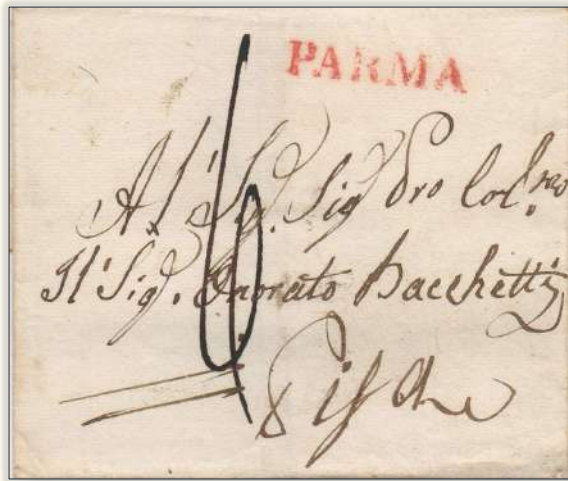 PARMA
6
Al' Sig. Sig Pro Col.mo
Il' Sig. Onorato Bacchetti
Pisa